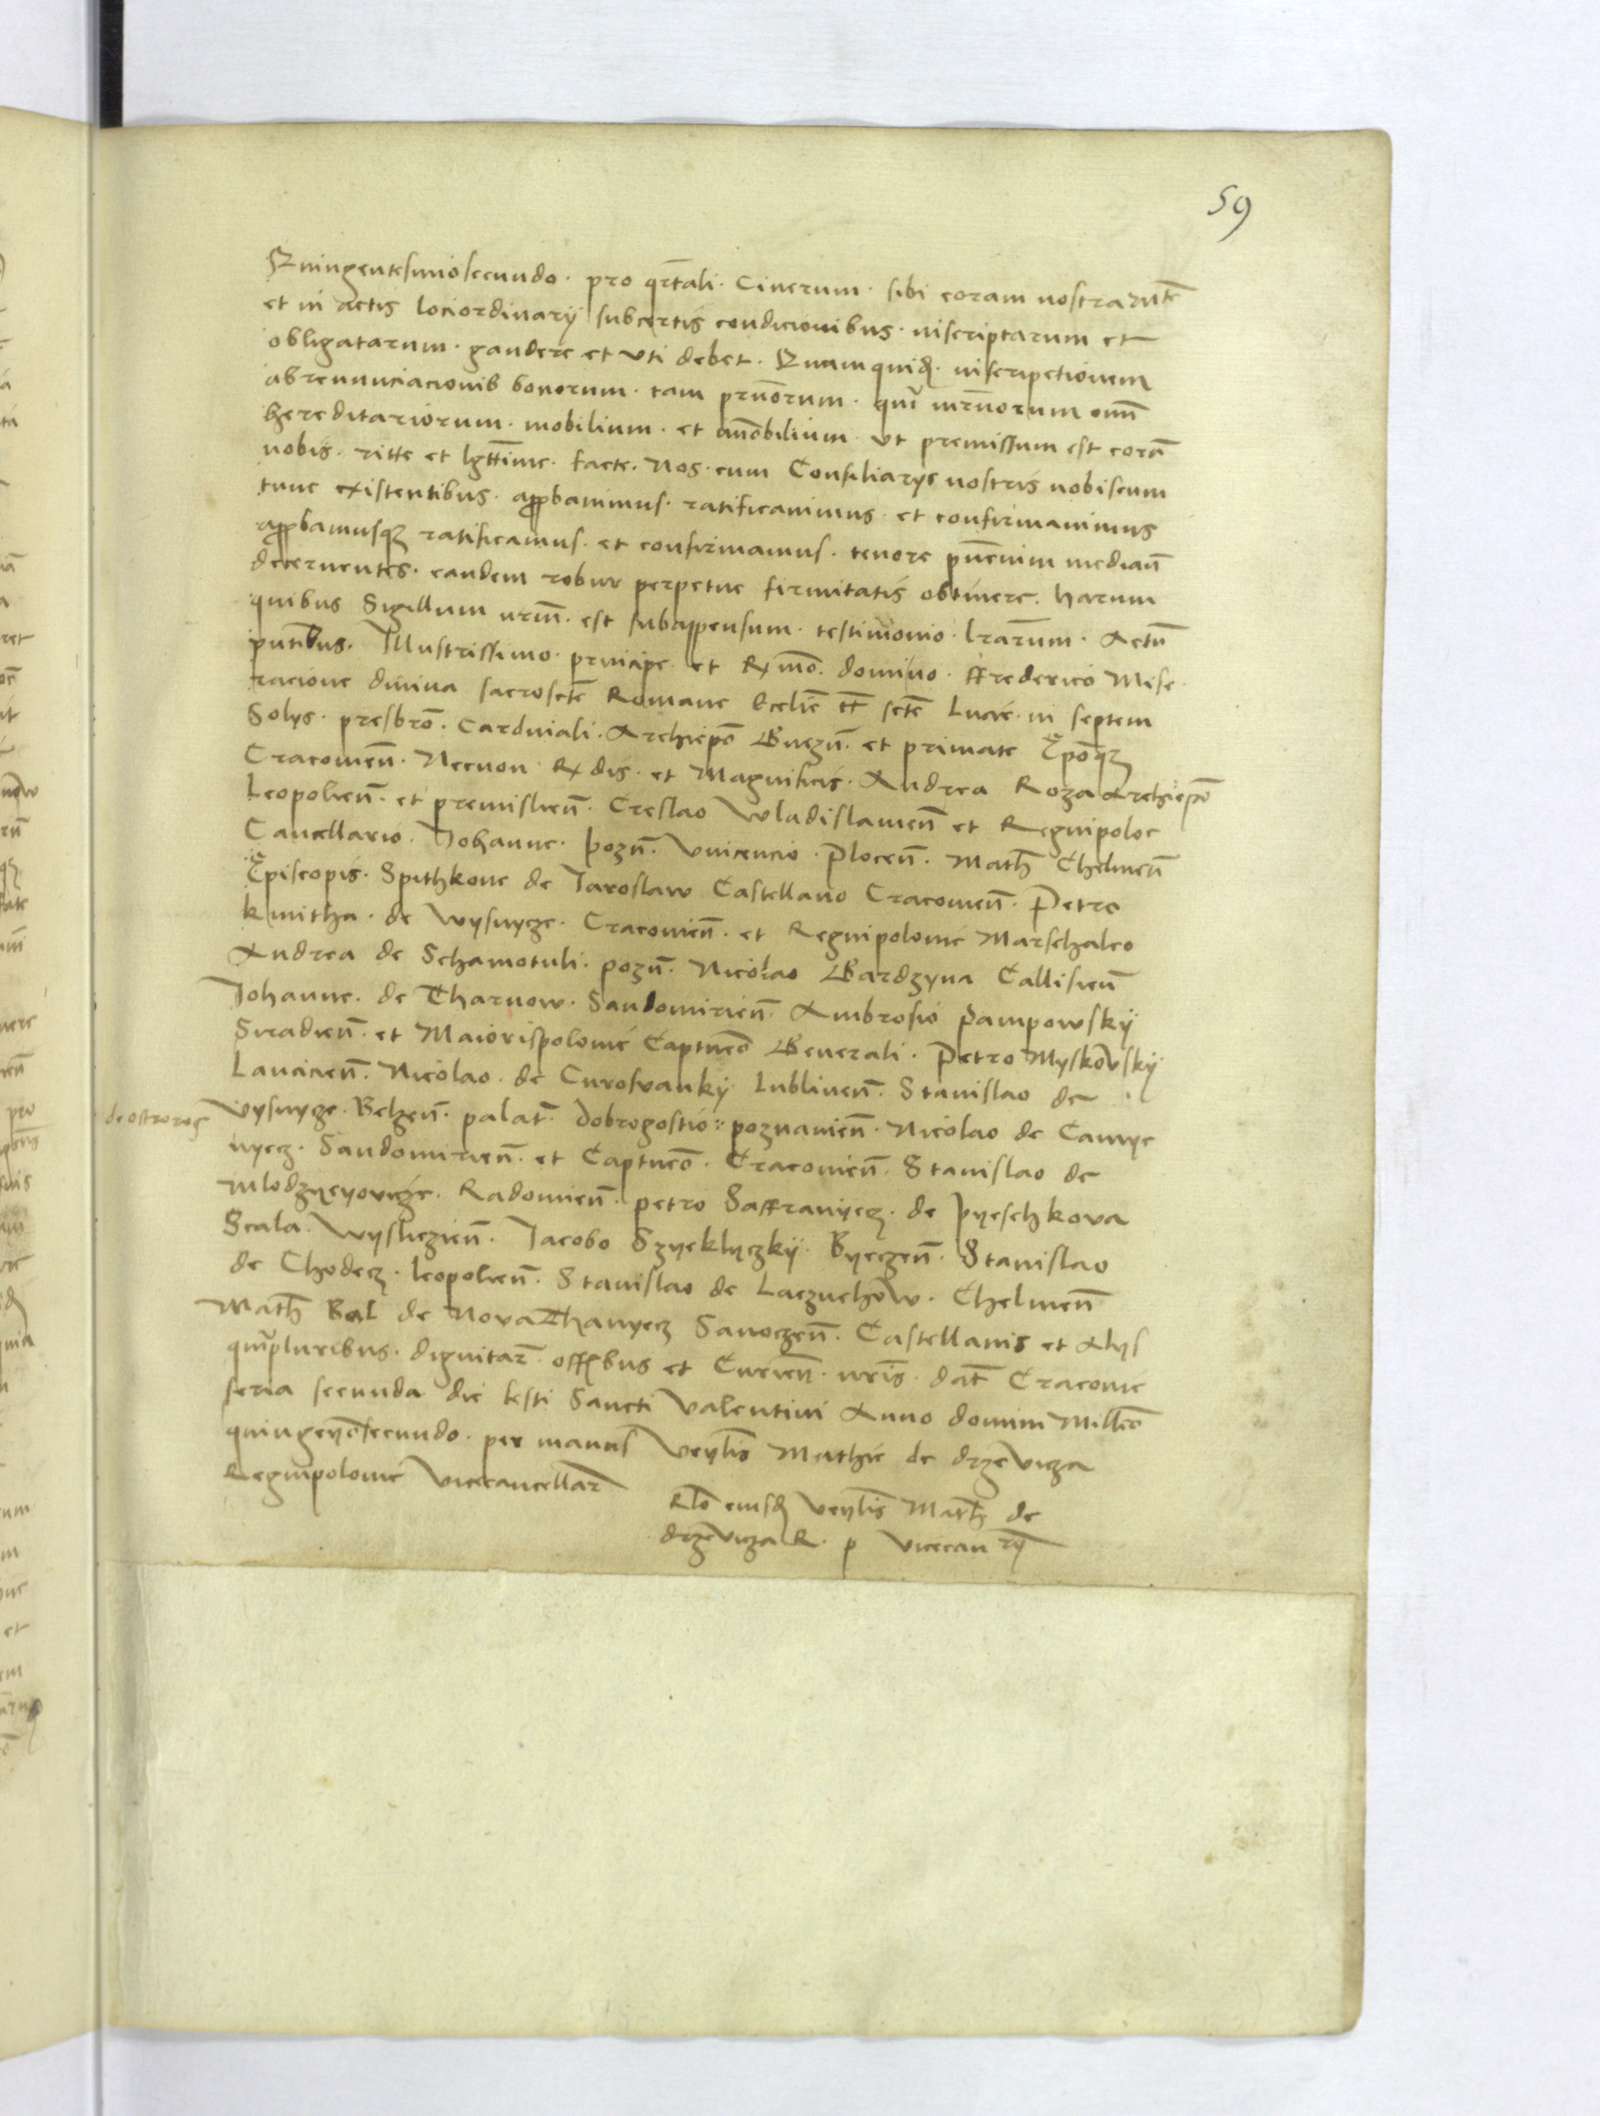 59
Quingentesimosecundo · pro qrtali · Cinerum · sibi coram nostra Mte
et in actis lociordinarij subcertis condicionibus · inscriptarum et
obligatarum · gaudere et vti debet · Quamquid · inscripcionem
abrenunciacionis bonorum · tam prnorum · qm mrnorum omn
hereditariorum · mobilium · et imobilium · vt premissum est corā
nobis · ritte et lgttime · facte · Nos · cum Consiliarys nostris nobiscum
tunc existentibus · appbauimus · ratificauimus · et confirmauimus
appbamusqz ratificamus · et confirmamus · tenore pñcium mediañ
decernentes · eandem robur perpetue firmitatis obtinere · harum
quibus Sigillum nrm̄ · est subappensum · testimonio · lrarum · Actū
pntibus · Illustrissimo · principe · et Rxmo · domino · ffrederico Mise
racione diuina sacroscte Romane Ecclie tt scte Lucie · in septem
Solys · presbro · Cardinali · Archiepo Gnezn · et primate Epoqz
Cracouien · Necnon Rxdis · et Magnificis · Andrea Roza Archiepo
Leopolien · et premislien · Creslao Wladislauien et Regnipoloe
Cancellario · Johanne · pozn · Vincencio · Plocen · Math Chelmen
Episcopis · Spithkone de Iaroslaw Castellano Cracouien · Petro
kmitha · de Wysnycze · Cracouien · et Regnipolonie Marschalco
Andrea de Schamotuli · pozn · Nicolao Gardzyna Callisien
Johanne · de Tharnow · Sandomirien · Ambrosio Pampowskij
Siradien · et Maiorispolonie Captneo Generali · Petro Myskowskij
Lancicien · Nicolao · de Curoswanky · Lublinen · Stanislao de
Vysnyze · Belzen · palat · dobrogostio · poznanien · Nicolao de Camye
de ostrorog
nyecz · Sandomirien · et Captneo · Cracouien · Stanislao de
Mlodzyeyovicze · Radomien · petro Saffranyecz · de pyeschkova
Scala · Wysliczien · Jacobo Szyeklyczkij · Byeczen · Stanislao
de Chodecz · leopolien · Stanislao de Lacznchow · Chelmen
Math Bal de Nova Thanyecz Sanoczen · Castellanis et Alys
qmpluribus · dignitar · offibus et Curien · nris · dat Cracouie
feria secunda die festi Sancti Valentini Anno domini Milleo
quingenosecundo · per manus Venlis Mathie de drzevicza
Regnipolonie Vicecancellar
Rlo eiusd Venlis Math de
drzevicza R · p vicecan rij